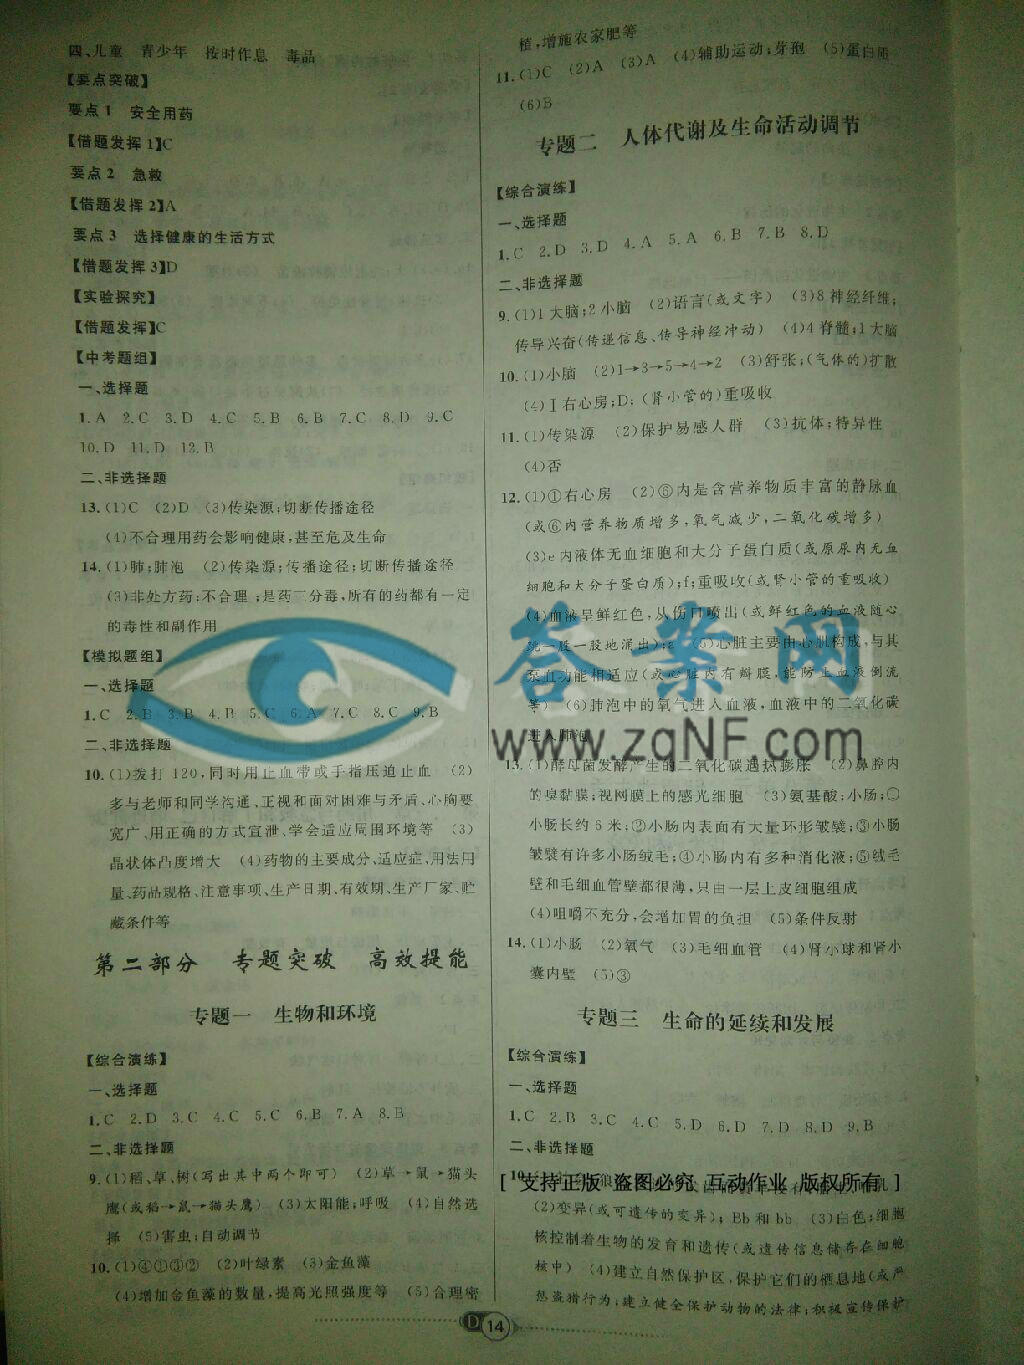 四、儿童　青少年　按时作息　毒品
【要点突破】
要点1　安全用药
【借题发挥1】C
要点2　急救
【借题发挥2】A
要点3　选择健康的生活方式
【借题发挥3】D
【实验探究】
【借题发挥】C
【中考题组】
一、选择题
1.A　2.C　3.D　4.C　5.B　6.B　7.C　8.D　9.C
10.D　11.D　12.B
二、非选择题
13.(1)C　(2)D　(3)传染源;切断传播途径
(4)不合理用药会影响健康,甚至危及生命
14.(1)肺;肺泡　(2)传染源;传播途径;切断传播途径
(3)非处方药;不合理;是药三分毒,所有的药都有一定
的毒性和副作用
【模拟题组】
一、选择题
1.C　2.B　3.B　4.B　5.C　6.A　7.C　8.C　9.B
二、非选择题
10.(1)拨打120,同时用止血带或手指压迫止血　(2)
多与老师和同学沟通、正视和面对困难与矛盾、心胸要
宽广、用正确的方式宣泄、学会适应周围环境等　(3)
晶状体凸度增大　(4)药物的主要成分、适应症、用法用
量、药品规格、注意事项、生产日期、有效期、生产厂家、贮
藏条件等
第二部分　专题突破　高效提能
专题一　生物和环境
【综合演练】
一、选择题
1.C　2.D　3.C　4.C　5.C　6.C　7.A　8.B
二、非选择题
9.(1)稻、草、树(写出其中两个即可)　(2)草→鼠→猫头
鹰(或稻→鼠→猫头鹰)　(3)太阳能;呼吸　(4)自然选
择　(5)害虫;自动调节
10.(1)④①③②　(2)叶绿素　(3)金鱼藻
(4)增加金鱼藻的数量,提高光照强度等　(5)合理密
植,增施农家肥等
11.(1)C　(2)A　(3)A　(4)辅助运动;芽孢　(5)蛋白质
(6)B
专题二　人体代谢及生命活动调节
【综合演练】
一、选择题
1.C　2.D　3.D　4.A　5.A　6.B　7.B　8.D
二、非选择题
9.(1)1大脑;2小脑　(2)语言(或文字)　(3)8神经纤维;
传导兴奋(传递信息、传导神经冲动)　(4)4脊髓;1大脑
10.(1)小脑　(2)1→3→5→4→2　(3)舒张;(气体的)扩散
(4)Ⅰ右心房;D;(肾小管的)重吸收
11.(1)传染源　(2)保护易感人群　(3)抗体;特异性
(4)否
12.(1)①右心房　(2)⑥内是含营养物质丰富的静脉血
(或⑥内营养物质增多,氧气减少,二氧化碳增多)
(3)e内液体无血细胞和大分子蛋白质(或原尿内无血
细胞和大分子蛋白质);f;重吸收(或肾小管的重吸收)
(4)血液呈鲜红色,从伤口喷出(或鲜红色的血液随心
跳一股一股地涌出);a　(5)心脏主要由心肌构成,与其
泵血功能相适应(或心脏内有瓣膜,能防止血液倒流
等)　(6)肺泡中的氧气进入血液,血液中的二氧化碳
进入肺泡
13.(1)酵母菌发酵产生的二氧化碳遇热膨胀　(2)鼻腔内
的嗅黏膜;视网膜上的感光细胞　(3)氨基酸;小肠;①
小肠长约6米;②小肠内表面有大量环形皱襞;③小肠
皱襞有许多小肠绒毛;④小肠内有多种消化液;⑤绒毛
壁和毛细血管壁都很薄,只由一层上皮细胞组成
(4)咀嚼不充分,会增加胃的负担　(5)条件反射
14.(1)小肠　(2)氧气　(3)毛细血管　(4)肾小球和肾小
囊内壁　(5)③
专题三　生命的延续和发展
【综合演练】
一、选择题
1.C　2.B　3.C　4.C　5.D　6.D　7.D　8.D　9.B
二、非选择题
10.
[ 支持正版 盗图必究 互动作业 版权所有 ]
(2)变异(或可遗传的变异);Bb和bb　(3)白色;细胞
核控制着生物的发育和遗传(或遗传信息储存在细胞
核中)　(4)建立自然保护区,保护它们的栖息地(或严
惩盗猎行为;建立健全保护动物的法律;积极宣传保护
答案网
www.zqNF.com
D 14